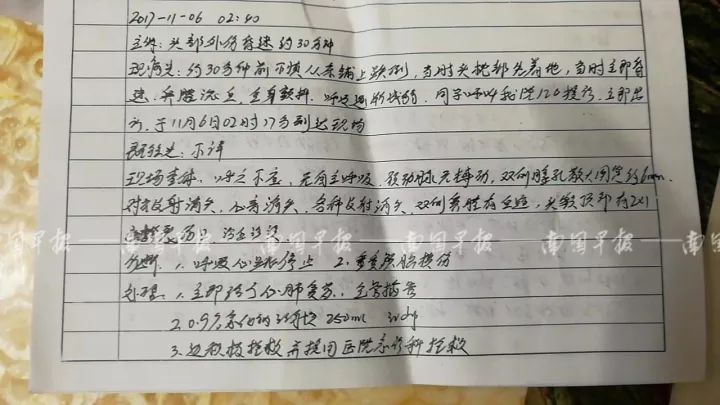 2017-11-06 02:40
主诉:头部外伤昏迷约30分钟
现病史:约30分钟前不慎从床铺上跌倒,当时头枕部先着地,当时立即昏
迷,鼻腔流血,全身 呼吸逐渐减弱,同学呼叫我院120接诊,立即出
诊,于11月6日02时17分到达现场
既往史:不详
现场查体:呼之不应,无自主呼吸,颈动脉无搏动,双侧瞳孔散大固定约6mm
对光反射消失,心音消失,各种反射消失,双侧鼻腔有血迹,头枕顶部有2×1
南国早报 南国早报 南国早报
诊断:1.呼吸心跳停止 2.重度颅脑损伤
处理:1.立即给予心肺复苏,
2. 0.9%氯化钠注射液 250ml ivdrip
3.边积极抢救并接回医院急诊科抢救